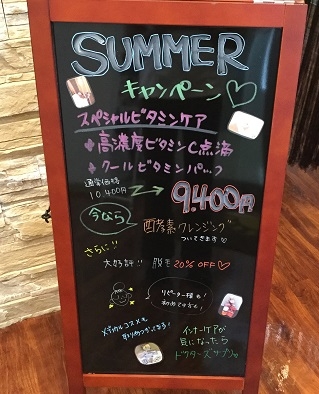 SUMMER
キャンペーン♡
スペシャルビタミンケア
高濃度ビタミンC点滴
クールビタミンパック
通常価格
10,400円
9,400円
今なら
酵素クレンジング
ついてきます
さらに!!
大好評!! 脱毛20%OFF♡
リピーター様も!
初めての方も!
メディカルコスメも
取りそろえてます!
インナーケアが
気になったら
ドクターズサプリ